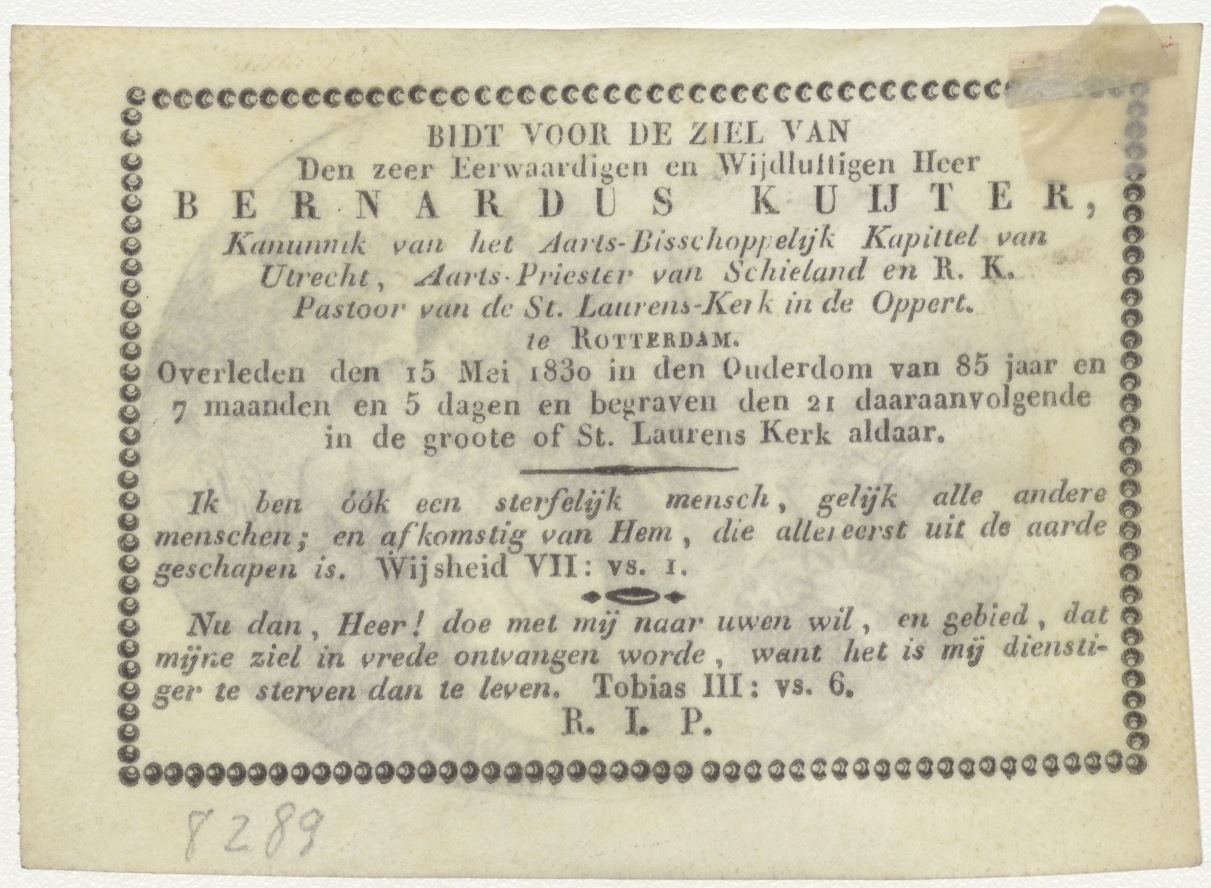 BIDT VOOR DE ZIEL VAN
Den zeer Eerwaardigen en Wijdluftigen Heer
BERNARDUS KUIJTER,
Kanunnik van het Aarts-Bisschoppelijk Kapittel van
Utrecht, Aarts-Priester van Schieland en R. K.
Pastoor van de St. Laurens-Kerk in de Oppert.
te ROTTERDAM.
Overleden den 15 Mei 1830 in den Ouderdom van 85 jaar en
7 maanden en 5 dagen en begraven den 21 daaraanvolgende
in de groote of St. Laurens Kerk aldaar.
Ik ben óók een sterfelijk mensch, gelijk alle andere
menschen; en afkomstig van Hem, die allereerst uit de aarde
geschapen is. Wijsheid VII: vs. 1.
Nu dan, Heer! doe met mij naar uwen wil, en gebied, dat
mijne ziel in vrede ontvangen worde, want het is mij diensti-
ger te sterven dan te leven. Tobias III: vs. 6.
R. I. P.
8289